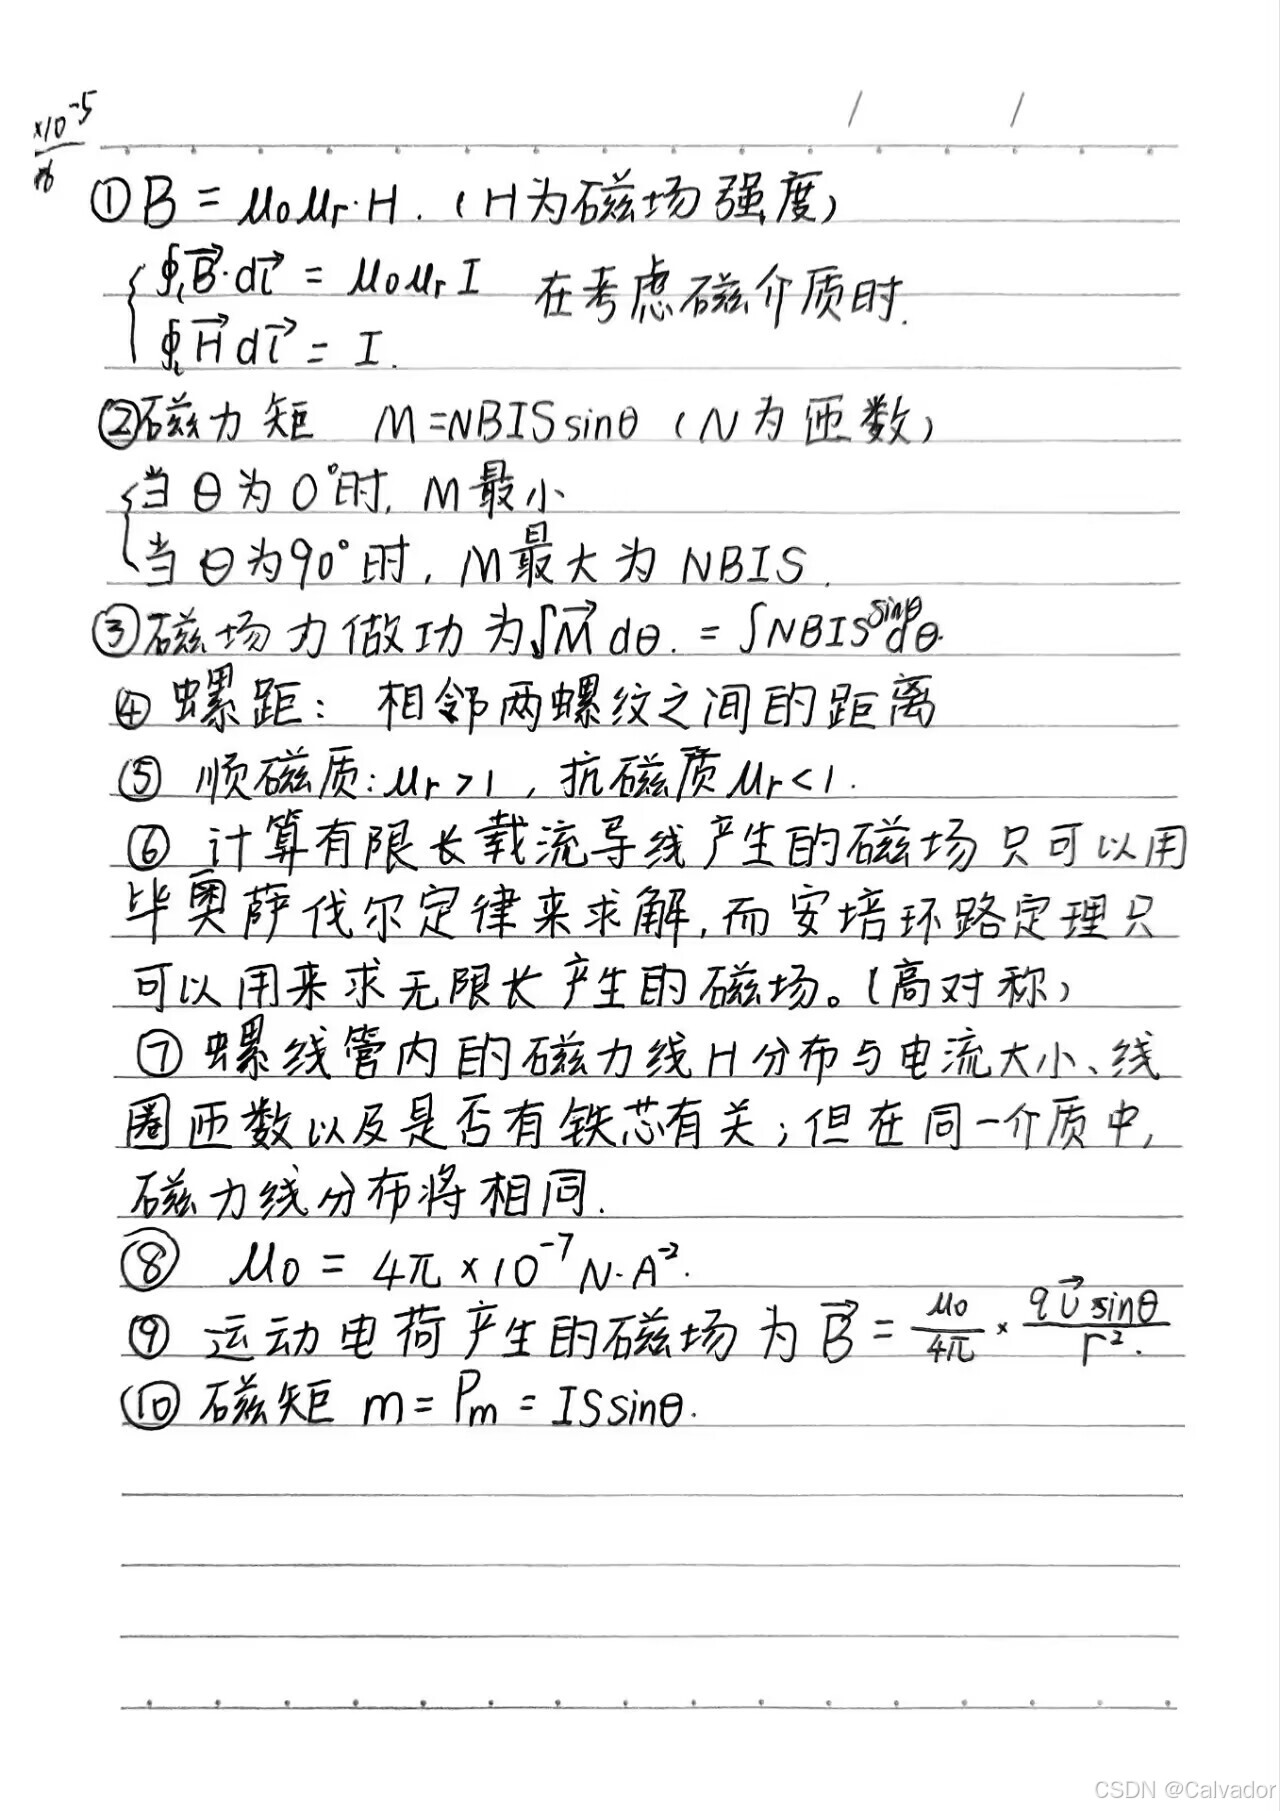 ×10⁻⁵
/ /
①B = μ₀μᵣ·H.（H为磁场强度）
∮ₗB⃗·dl⃗ = μ₀μᵣI 在考虑磁介质时.
∮ₗH⃗dl⃗ = I.
②磁力矩 M=NBISsinθ（N为匝数）
当θ为0°时, M最小
当θ为90°时, M最大为NBIS.
③磁场力做功为∫M⃗dθ. = ∫NBISsinθdθ.
④螺距: 相邻两螺纹之间的距离
⑤ 顺磁质:μᵣ>1, 抗磁质μᵣ<1.
⑥ 计算有限长载流导线产生的磁场只可以用
毕奥萨伐尔定律来求解,而安培环路定理只
可以用来求无限长产生的磁场。(高对称)
⑦螺线管内的磁力线H分布与电流大小、线
圈匝数以及是否有铁芯有关;但在同一介质中,
磁力线分布将相同.
⑧ μ₀ = 4π×10⁻⁷N·A⁻².
⑨ 运动电荷产生的磁场为 B⃗ = μ₀/4π × qv⃗sinθ/r².
⑩磁矩 m = Pₘ = ISsinθ.
CSDN @Calvador